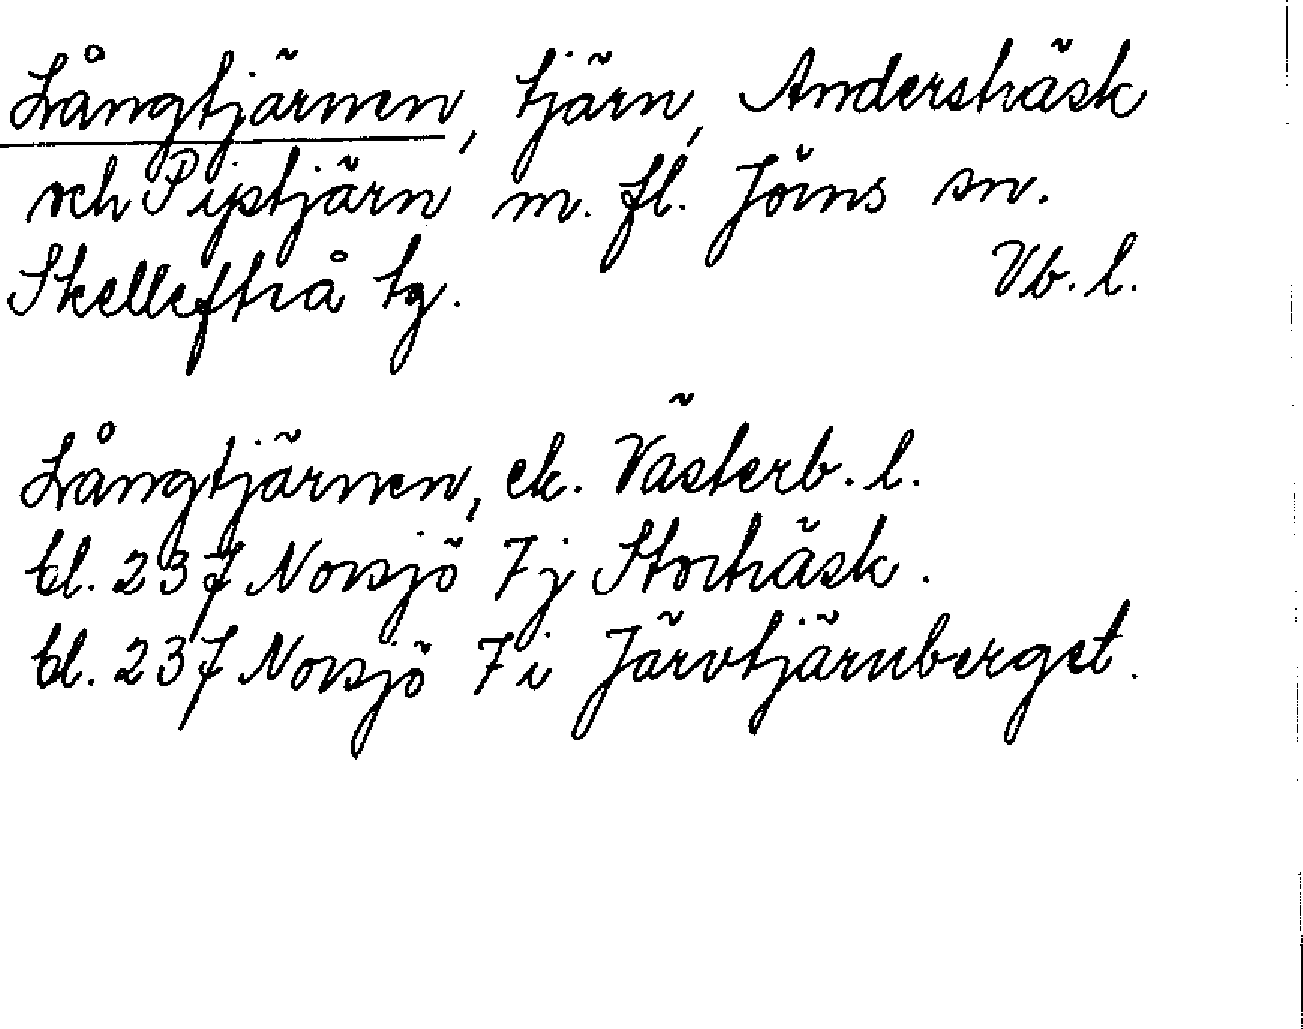 Långtjärnen, tjärn, Andersträsk
och Pijstjärn m. fl. Jörns sn.
Skellefteå tg. Vb. l.
Långtjärnen, ek. Västerb. l.
bl. 237 Norsjö 7j Storträsk.
bl. 237 Norsjö 7i Järvtjärnberget.